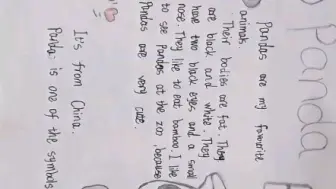 Panda
Pandas are my favourite
animals. Their bodies are fat. They
are black and white. They
have two black eyes and a small
nose. They like to eat bamboo. I like
to see Pandas at the zoo, because
Pandas are very cute.
It's from China.
Panda is one of the symbols